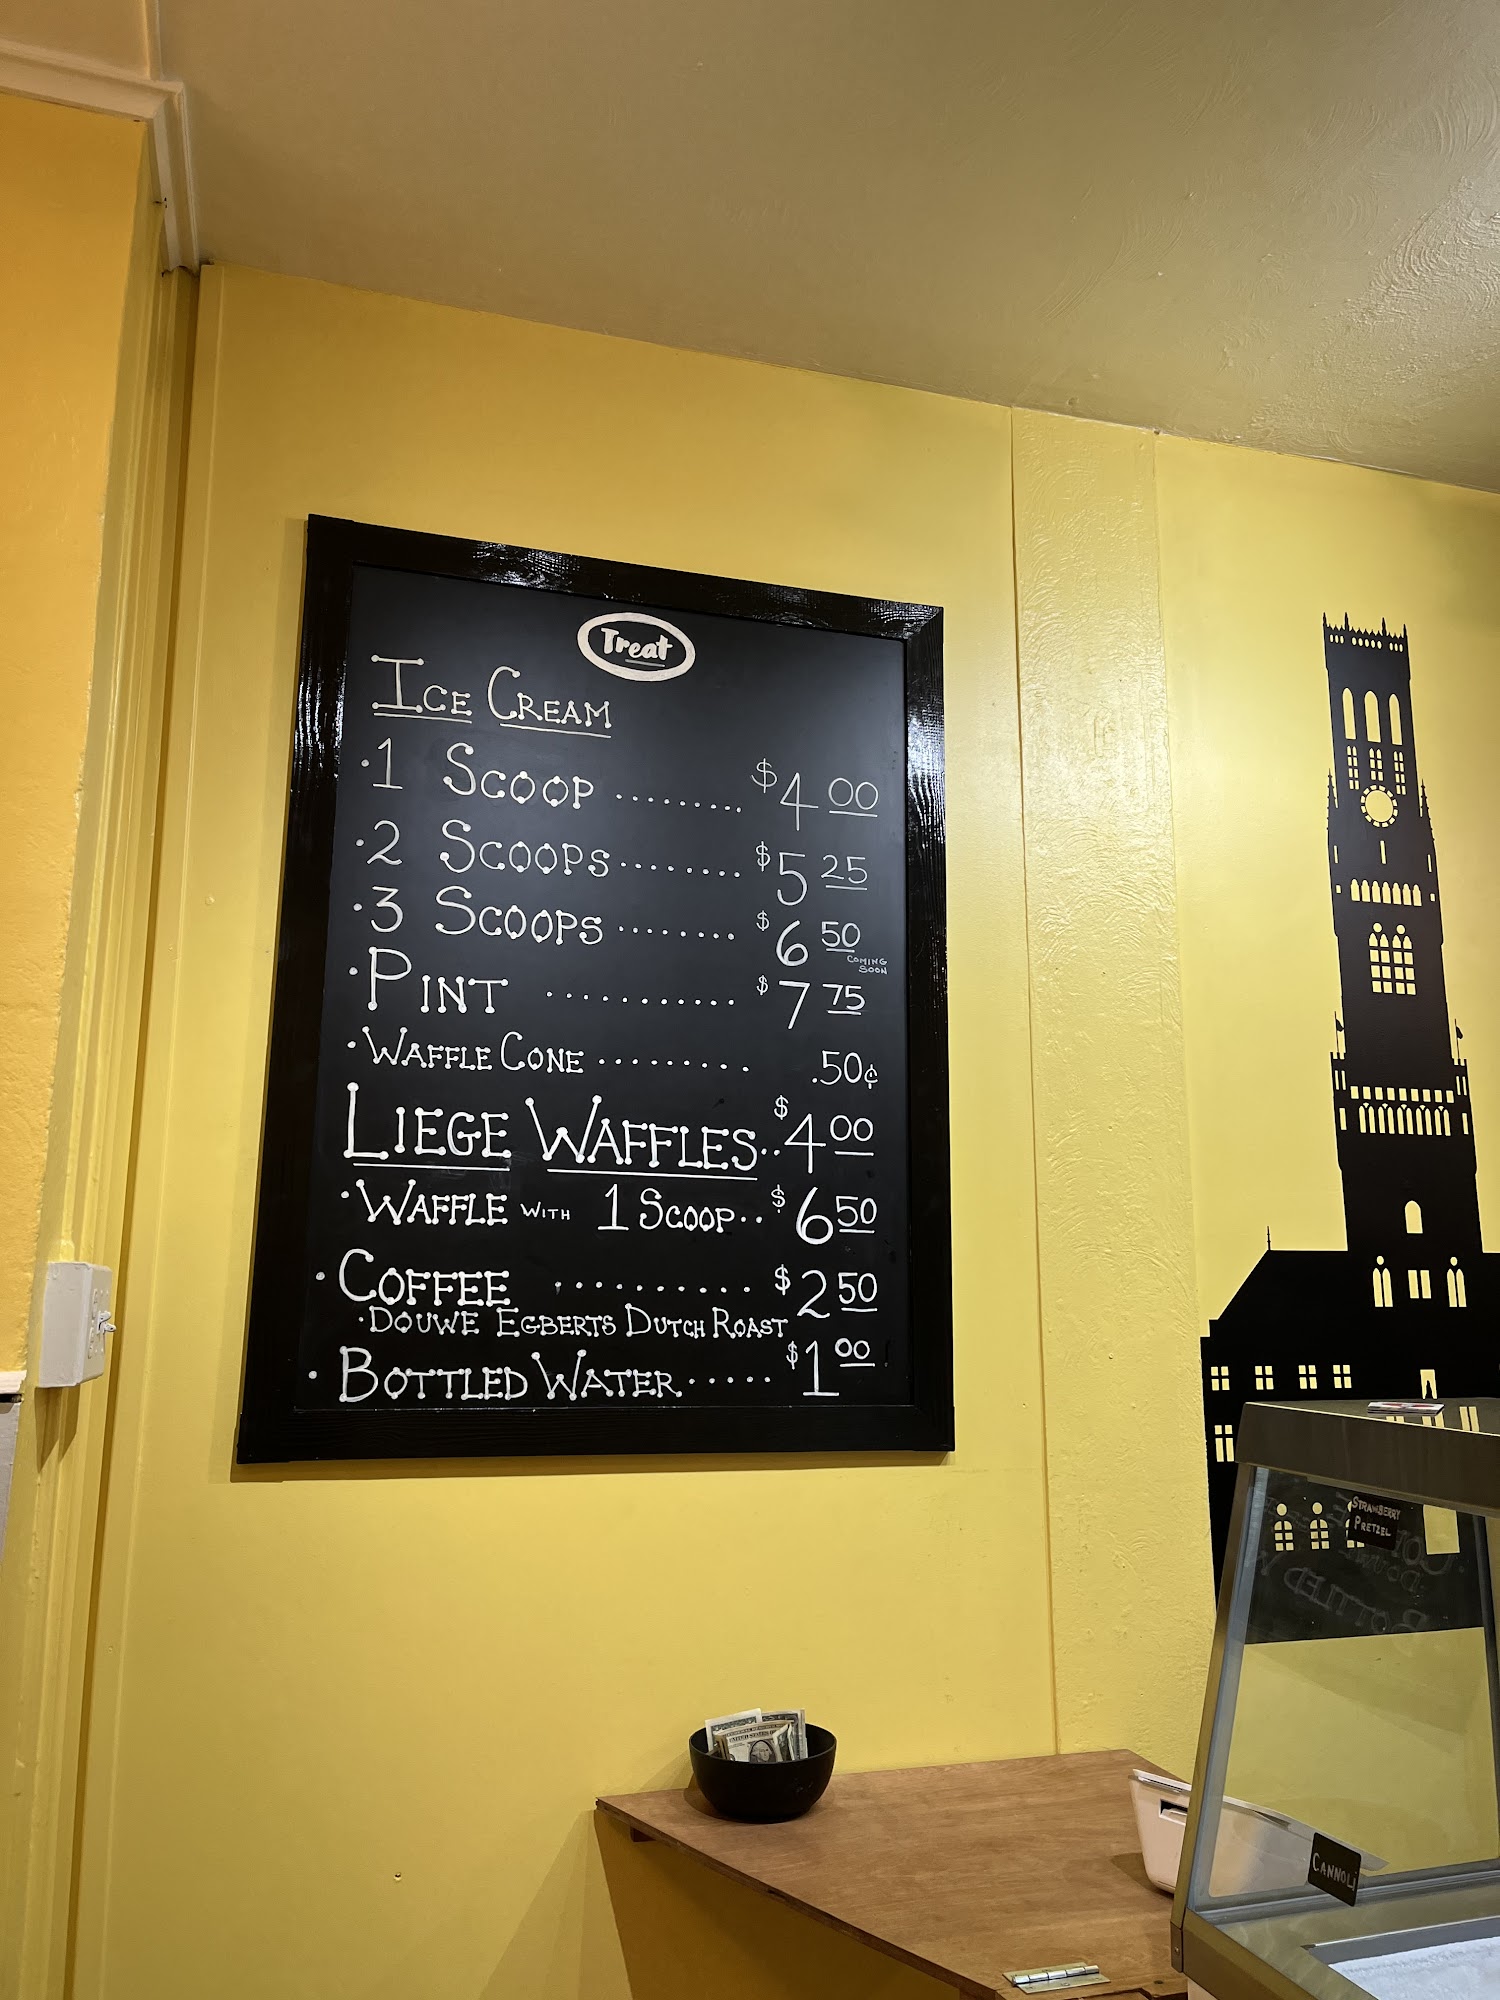 Treat
ICE CREAM
·1 SCOOP ......... $4 00
·2 SCOOPS........ $5 25
·3 SCOOPS ........ $6 50
COMING
SOON
·PINT ........... $7 75
·WAFFLE CONE ......... .50¢
LIEGE WAFFLES.. $4 00
·WAFFLE WITH 1 SCOOP.. $6 50
·COFFEE .......... $2 50
·DOUWE EGBERTS DUTCH ROAST
·BOTTLED WATER..... $1 00
STRAWBERRY
PRETZEL
CANNOLI